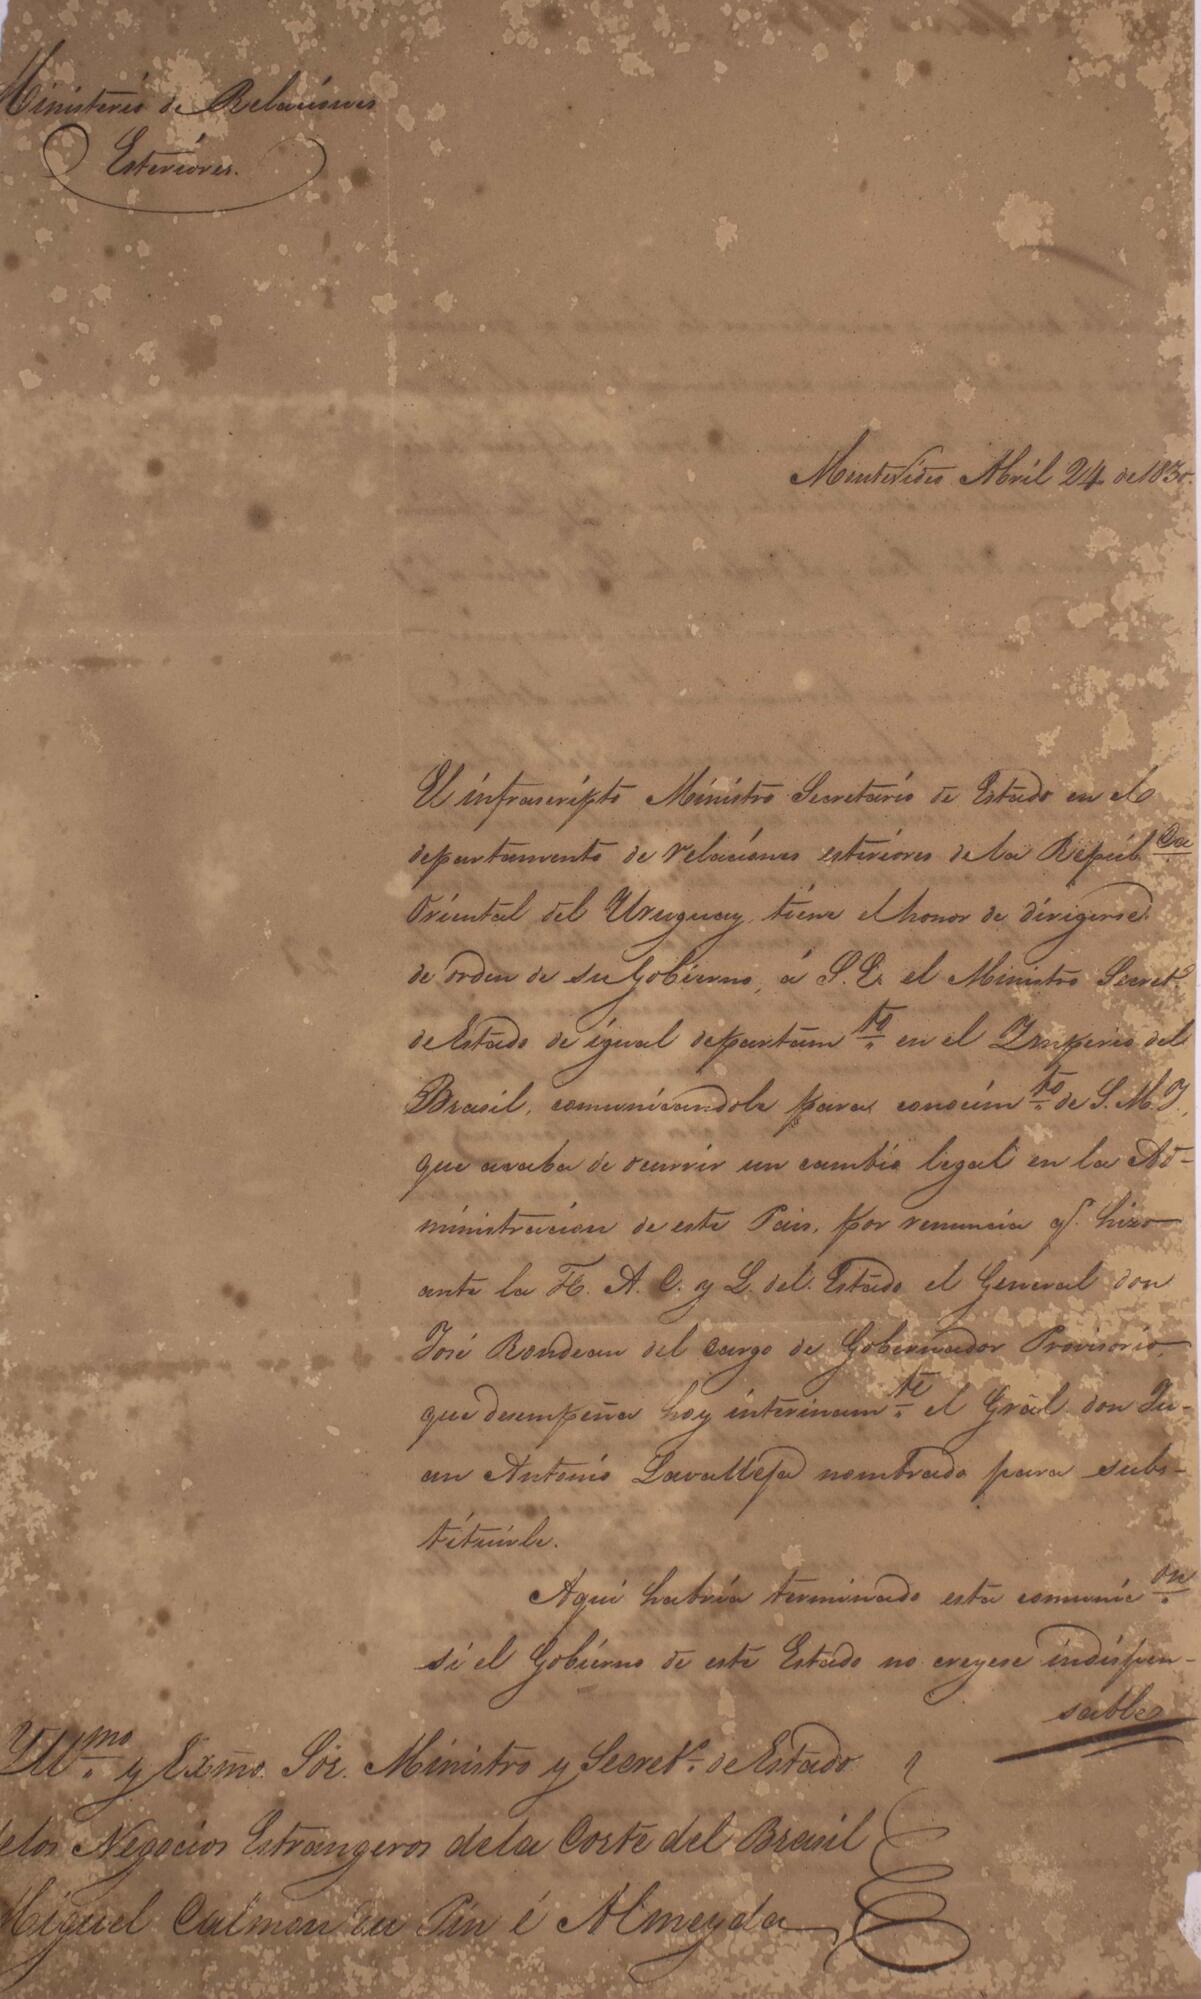 Ministerio de Relaciones
Esteriores.
Montevideo Abril 24 de 1830.
El infrascripto Ministro Secretario de Estado en el
departamento de relaciones esteriores de la Repúb.ca
Oriental del Uruguay, tiene el honor de dirigerse
de orden de su Gobierno, á S.E. el Ministro Secret.o
de Estado de igual departam.to en el Imperio del
Brasil, comunicandole para conocim.to de S.M.I,
que acaba de ocurrir un cambio legal en la Ad-
ministracion de este Pais, por renuncia q.e hizo
ante la H. A. C. y L. del Estado el General don
José Rondeau del cargo de Gobernador Provisorio,
que desempeña hoy interinam.te el Gräl don Ju-
an Antonio Lavalleja nombrado para subs-
tituirle.
Aqui habria terminado esta comunic.on
si el Gobierno de este Estado no creyese indispen-
sable
Ill.mo y Exm̃o. Sõr. Ministro y Secret.o de Estado
delos Negocios Estrangeros dela Corte del Brasil
Miguel Calmon du Pin é Almeyda